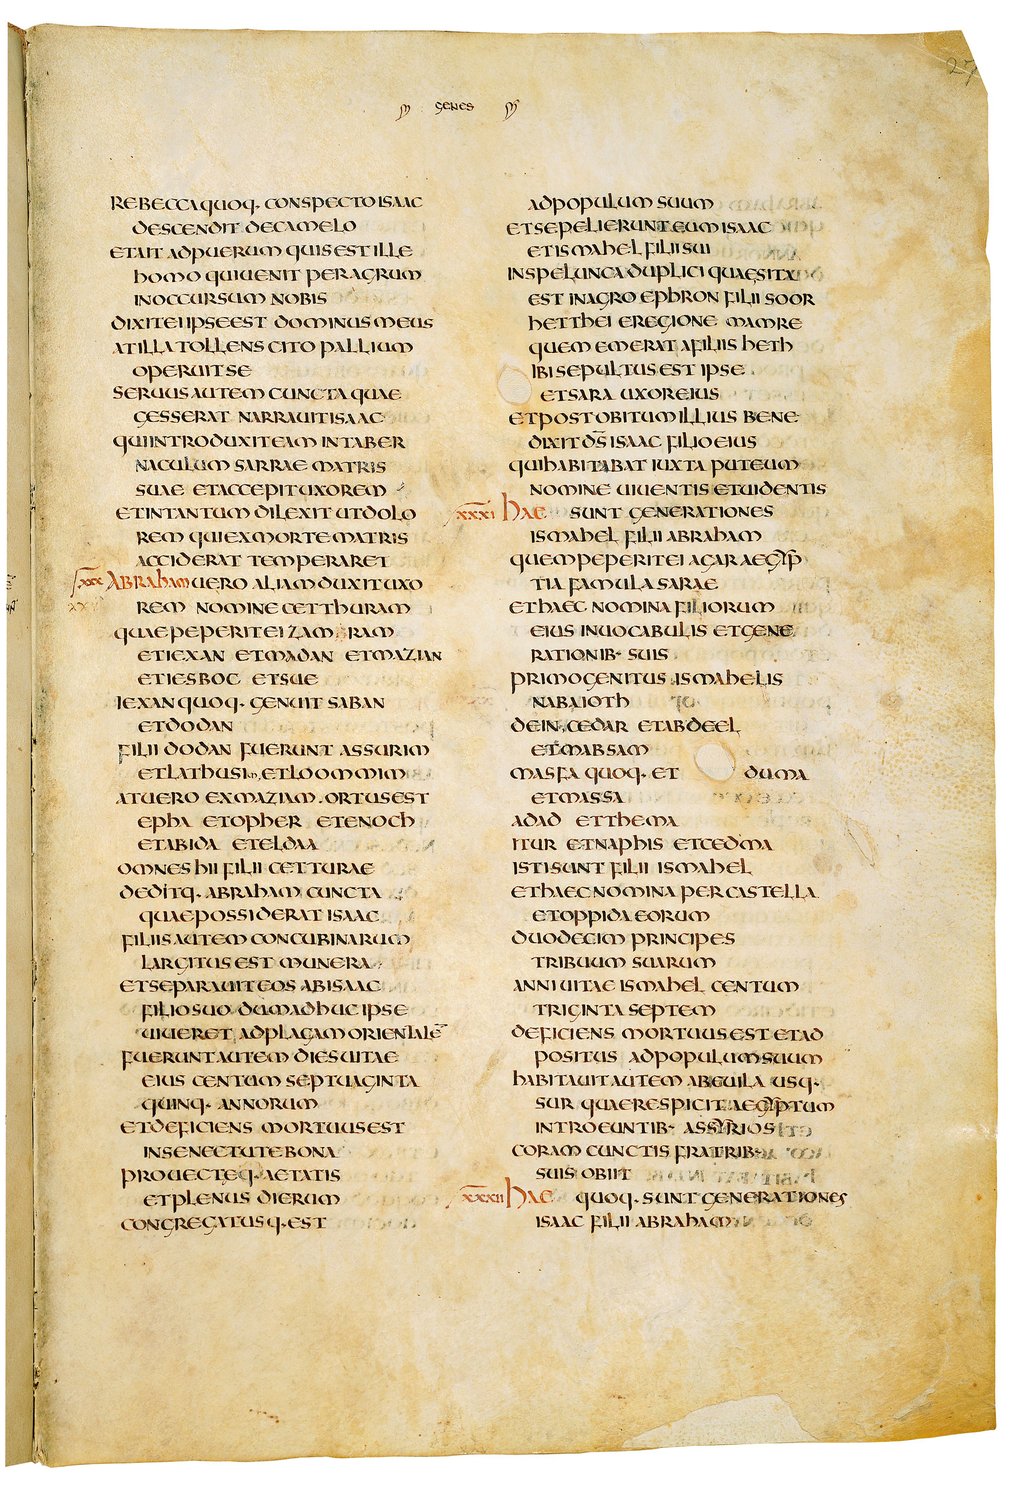 GENES
27
REBECCA quoq· CONSPECTO ISAAC
DESCENDIT DECAMELO
ETAIT ADPUERUM QUIS EST ILLE
HOMO QUI UENIT PER AGRUM
IN OCCURSUM NOBIS
DIXIT EI IPSE EST DOMINUS MEUS
AT ILLA TOLLENS CITO PALLIUM
OPERUIT SE
SERUUS AUTEM CUNCTA QUAE
GESSERAT NARRAUIT ISAAC
QUI INTRODUXIT EAM IN TABER
NACULUM SARRAE MATRIS
SUAE ET ACCEPIT UXOREM
ET IN TANTUM DILEXIT UT DOLO
REM QUI EX MORTE MATRIS
ACCIDERAT TEMPERARET
XXX ABRAHAM UERO ALIAM DUXIT UXO
REM NOMINE CETTHURAM
QUAE PEPERIT EI ZAMRAM
ET IEXAN ET MADAN ET MAZIAN
ET IESBOC ET SUE
IEXAN QUOQ· GENUIT SABAN
ET DODAN
FILII DODAN FUERUNT ASSURIM
ET LATHUSIM ET LOOMMIM
AT UERO EX MAZIAM· ORTUS EST
EPHA ET OPHER ET ENOCH
ET ABIDA ET ELDAA
OMNES HII FILII CETTURAE
DEDITQ· ABRAHAM CUNCTA
QUAE POSSIDERAT ISAAC
FILIIS AUTEM CONCUBINARUM
LARGITUS EST MUNERA
ET SEPARAUIT EOS AB ISAAC
FILIO SUO DUM ADHUC IPSE
UIUERET AD PLAGAM ORIENTALE̅
FUERUNT AUTEM DIES UITAE
EIUS CENTUM SEPTUAGINTA
QUINQ· ANNORUM
ET DEFICIENS MORTUUS EST
IN SENECTUTE BONA
PROUECTEQ· AETATIS
ET PLENUS DIERUM
CONGREGATUSQ· EST
AD POPULUM SUUM
ET SEPELIERUNT EUM ISAAC
ET ISMAHEL FILII SUI
IN SPELUNCA DUPLICI QUAE SITA
EST IN AGRO EPHRON FILII SOOR
HETTHEI E REGIONE MAMRE
QUEM EMERAT A FILIIS HETH
IBI SEPULTUS EST IPSE
ET SARA UXOR EIUS
ET POST OBITUM ILLIUS BENE
DIXIT D̅S̅ ISAAC FILIO EIUS
QUI HABITABAT IUXTA PUTEUM
NOMINE UIUENTIS ET UIDENTIS
XXXI HAE SUNT GENERATIONES
ISMAHEL FILII ABRAHAM
QUEM PEPERIT EI AGAR AEGYP
TIA FAMULA SARAE
ET HAEC NOMINA FILIORUM
EIUS IN UOCABULIS ET GENE
RATIONIB· SUIS
PRIMOGENITUS ISMAHELIS
NABAIOTH
DEIN CEDAR ET ABDEEL
ET MABSAM
MASFA QUOQ· ET DUMA
ET MASSA
ADAD ET THEMA
ITUR ET NAPHIS ET CEDMA
ISTI SUNT FILII ISMAHEL
ET HAEC NOMINA PER CASTELLA
ET OPPIDA EORUM
DUODECIM PRINCIPES
TRIBUUM SUARUM
ANNI UITAE ISMAHEL CENTUM
TRIGINTA SEPTEM
DEFICIENS MORTUUS EST ET AD
POSITUS AD POPULUM SUUM
HABITAUIT AUTEM AB EUILA USQ·
SUR QUAE RESPICIT AEGYPTUM
INTROEUNTIB· ASSYRIOS
CORAM CUNCTIS FRATRIB·
SUIS OBIIT
XXXII HAE QUOQ· SUNT GENERATIONES
ISAAC FILII ABRAHAM